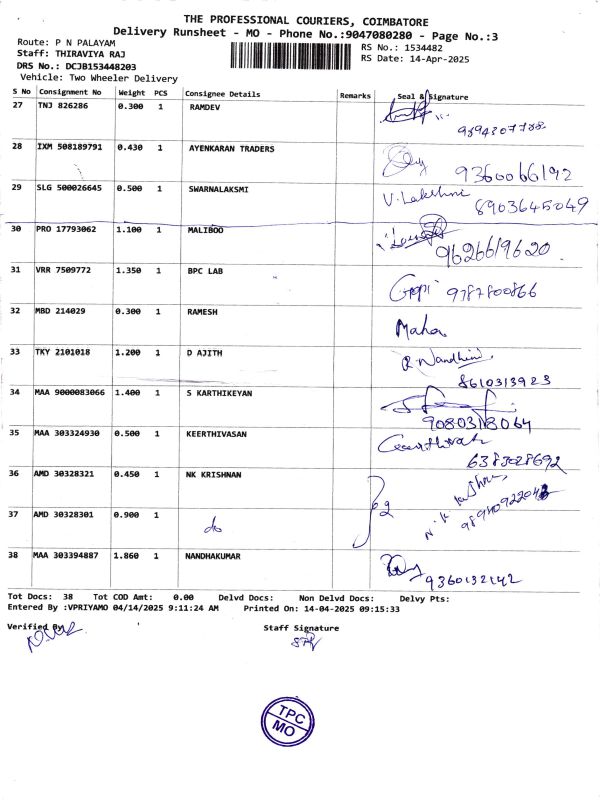 THE PROFESSIONAL COURIERS, COIMBATORE
Delivery Runsheet - MO - Phone No.:9047080280 - Page No.:3
Route: P N PALAYAM
RS No.: 1534482
Staff: THIRAVIYA RAJ
RS Date: 14-Apr-2025
DRS No.: DCJB153448203
Vehicle: Two Wheeler Delivery
S No Consignment No Weight PCS Consignee Details Remarks Seal & Signature
27 TNJ 826286 0.300 1 RAMDEV
9894307788
28 IXM 508189791 0.430 1 AYENKARAN TRADERS
9360066192
29 SLG 500026645 0.500 1 SWARNALAKSMI V. Lakshmi
8903645049
30 PRO 17793062 1.100 1 MALIBOO
9626619620
31 VRR 7509772 1.350 1 BPC LAB Gopi 9787800866
32 MBD 214029 0.300 1 RAMESH Maha
33 TKY 2101018 1.200 1 D AJITH R Nandhini
8610313923
34 MAA 9000083066 1.400 1 S KARTHIKEYAN
9080318064
35 MAA 303324930 0.500 1 KEERTHIVASAN
6383028692
36 AMD 30328321 0.450 1 NK KRISHNAN
37 AMD 30328301 0.900 1 do
38 MAA 303394887 1.860 1 NANDHAKUMAR
9360132142
Tot Docs: 38 Tot COD Amt: 0.00 Delvd Docs: Non Delvd Docs: Delvy Pts:
Entered By :VPRIYAMO 04/14/2025 9:11:24 AM Printed On: 14-04-2025 09:15:33
Verified By Staff Signature
TPC
MO